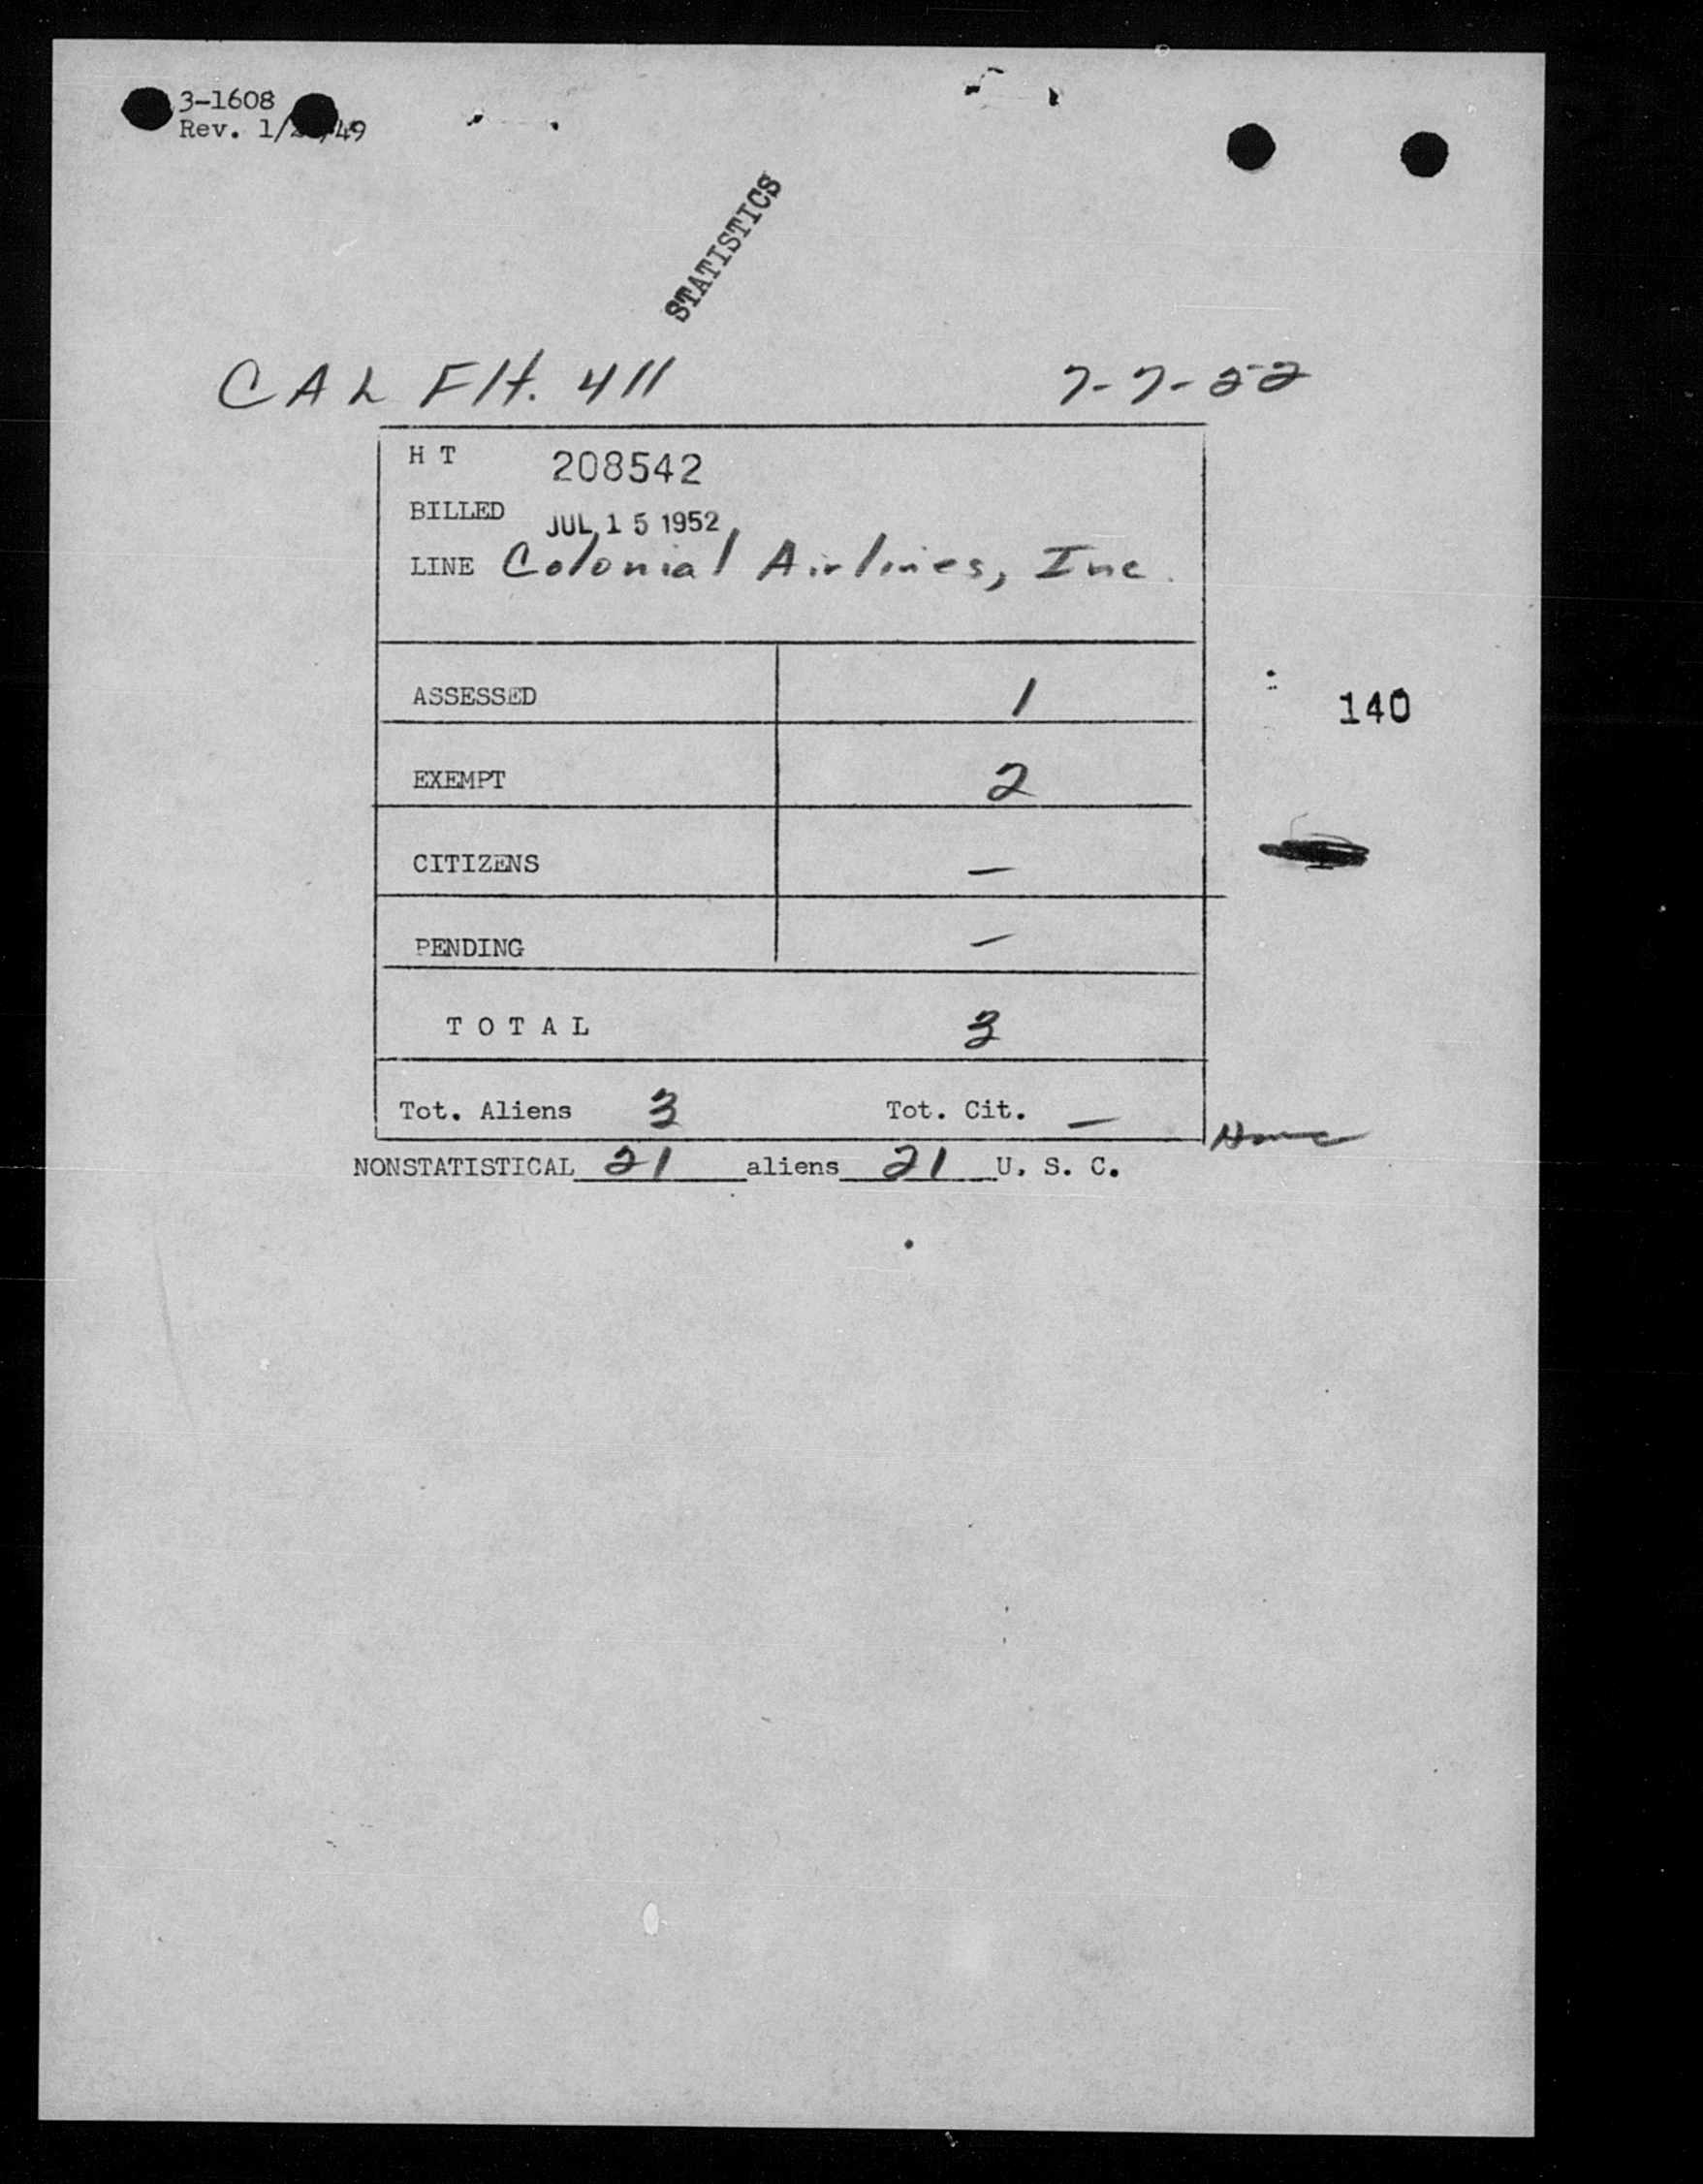 3-1608
Rev. 1/ /49
STATISTICS
CAL Flt. 411 7-7-52
H T 208542
BILLED JUL 15 1952
LINE Colonial Airlines, Inc.
ASSESSED 1
140
EXEMPT 2
CITIZENS —
PENDING —
T O T A L 3
Tot. Aliens 3 Tot. Cit. —
NONSTATISTICAL 21 aliens 21 U. S. C.